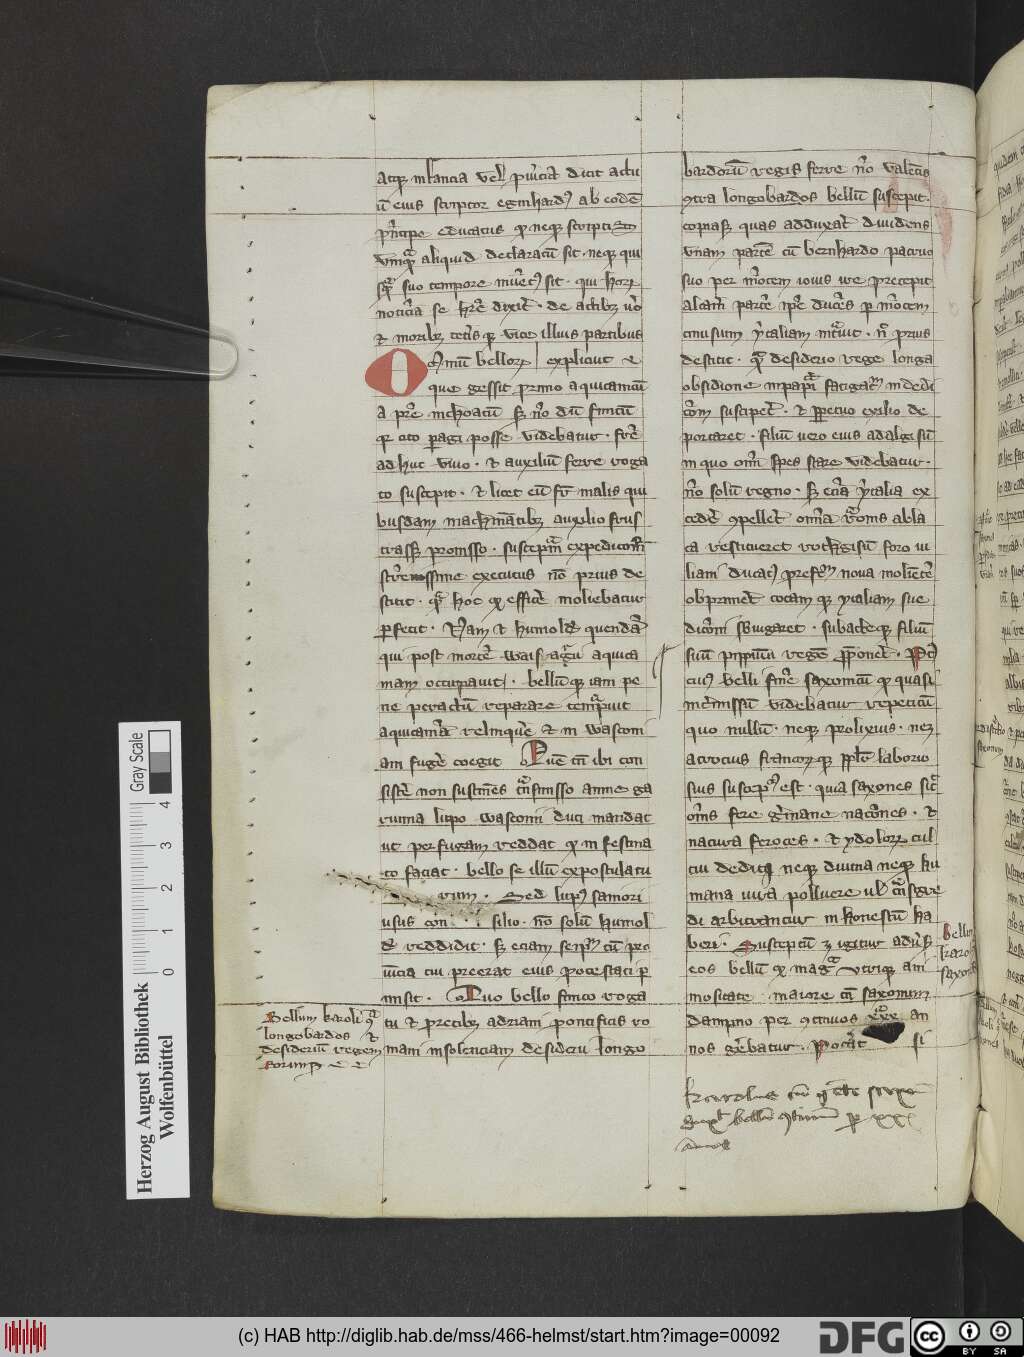 atque infancia vel puericia dicit actu
um eius scriptor eginhardus ab eodem
principe educatus quod neque scriptis
unquam aliquid declaratum sit neque qui
squam suo tempore inventus sit qui horum
noticiam se habere dixit de actibus vero
et moribus ceterisque vite illius partibus
Omnium bellorum explicavit
que gessit primo aquitanicum
a patre inchoatum sed non dum finitum
quia cito peragi posse videbatur fratre
ad huc vivo et auxilium ferre roga
to suscepit et licet eum frater malis qui
busdam machinantibus auxilio frus
trasset promisso susceptam expedicionem
strenuissime executus non prius de
stitit quam hoc quod efficere moliebatur
perfecit Nam et hunoldum quendam
qui post mortem waifarii aquita
niam occupavit bellumque iam pe
ne peractum reparare temptavit
aquitaniam relinquere et in wasconi
am fugere coegit Quem tamen ibi con
sistere non sustinens transmisso amne ga
runna lupo wasconum duci mandat
ut perfugam reddat quod ni festina
to faciat bello se illum expostulatu
rum Sed lupus saniori
usus con silio non solum hunol
dum reddidit sed eciam se ipsum cum pro
vincia cui preerat eius potestati per
misit Quo bello finito roga
tu et precibus adriani pontificis ro
mani insolenciam desiderii longo
Bellum karoli contra
longobardos et
desiderium regem
eorum
bardorum regis ferre non valentis
contra longobardos bellum suscepit
copiasque quas adduxerat dividens
unam partem cum bernhardo patruo
suo per montem iovis ire precepit
alteram partem ipse ducens per montem
cinisium ytaliam intravit nec prius
destitit quam desiderio rege longa
obsidione in papia fatigatum in dedi
cionem susciperet et perpetuo exilio de
portaret filium vero eius adalgisum
in quo omnium spes stare videbatur
non solum regno sed eciam ytalia ex
cedere compelleret omnia romanis abla
ta restitueret rothgisum foro iu
liani ducatus prefectum nova molientem
obprimeret totamque ytaliam sue
dicioni subiugaret subacteque filium
suum pippinum regem preponeret Post
cuius belli finem saxonicum quod quasi
intermissum videbatur repetitum
quo nullum neque prolixius neque
atrocius francorumque populo laborio
sius susceptum est quia saxones sicut
omnes fere germanie naciones et
natura feroces et ydolorum cul
tui dediti neque divina neque hu
mana iura polluere vel transgre
di arbitrantur inhonestum ha
beri Susceptum est igitur adversus
eos bellum quod magna utrimque ani
mositate maiore tamen saxonum
dampno per continuos xxx an
nos gerebatur Poterat si
bellum
karoli
saxon
karolus cum gente saxo
gessit bellum continuum per xxx
annos
Gray Scale
0 1 2 3 4
Herzog August Bibliothek
Wolfenbüttel
(c) HAB http://diglib.hab.de/mss/466-helmst/start.htm?image=00092
DFG
cc BY SA